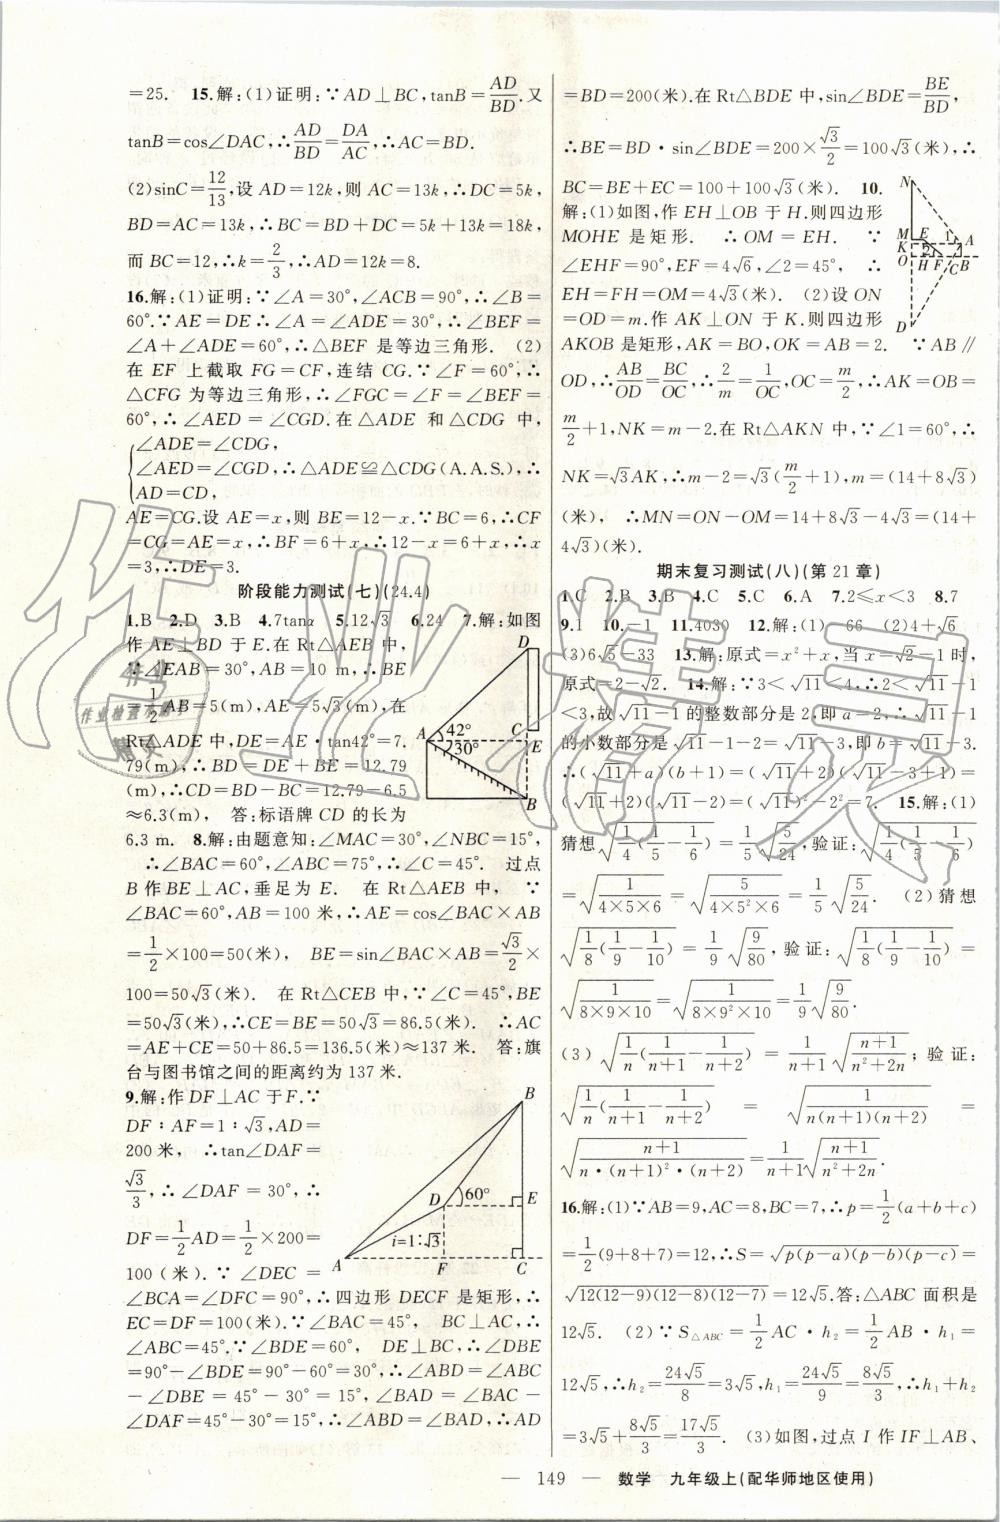 =25. 15.解:(1)证明:∵AD⊥BC,tanB=AD/BD.又
tanB=cos∠DAC,∴AD/BD=DA/AC,∴AC=BD.
(2)sinC=12/13,设 AD=12k,则 AC=13k,∴DC=5k,
BD=AC=13k,∴BC=BD+DC=5k+13k=18k,
而 BC=12,∴k=2/3,∴AD=12k=8.
16.解:(1)证明:∵∠A=30°,∠ACB=90°,∴∠B=
60°.∵AE=DE∴∠A=∠ADE=30°,∴∠BEF=
∠A+∠ADE=60°,∴△BEF 是等边三角形. (2)
在 EF 上截取 FG=CF,连结 CG.∵∠F=60°,∴
△CFG 为等边三角形,∴∠FGC=∠F=∠BEF=
60°,∴∠AED=∠CGD.在△ADE 和△CDG 中,
∠ADE=∠CDG,
∠AED=∠CGD,∴△ADE≌△CDG(A.A.S.),∴
AD=CD,
AE=CG.设 AE=x,则 BE=12-x.∵BC=6,∴CF
=CG=AE=x,∴BF=6+x,∴12-x=6+x,∴x
=3,∴DE=3.
阶段能力测试(七)(24.4)
1.B 2.D 3.B 4.7tanα 5.12√3 6.24 7.解:如图
作 AE⊥BD 于 E.在 Rt△AEB 中,
∵∠EAB=30°,AB=10 m,∴BE
=1/2AB=5(m),AE=5√3(m),在
Rt△ADE 中,DE=AE·tan42°=7.
79(m),∴BD=DE+BE=12.79
(m),∴CD=BD-BC=12.79-6.5
≈6.3(m), 答:标语牌 CD 的长为
6.3 m. 8.解:由题意知:∠MAC=30°,∠NBC=15°,
∴∠BAC=60°,∠ABC=75°,∴∠C=45°. 过点
B 作 BE⊥AC,垂足为 E. 在 Rt△AEB 中, ∵
∠BAC=60°,AB=100 米,∴AE=cos∠BAC×AB
=1/2×100=50(米), BE=sin∠BAC×AB=√3/2×
100=50√3(米). 在 Rt△CEB 中,∵∠C=45°,BE
=50√3(米),∴CE=BE=50√3=86.5(米). ∴AC
=AE+CE=50+86.5=136.5(米)≈137 米. 答:旗
台与图书馆之间的距离约为 137 米.
9.解:作 DF⊥AC 于 F.∵
DF∶AF=1∶√3,AD=
200 米,∴tan∠DAF=
√3/3,∴∠DAF=30°,∴
DF=1/2AD=1/2×200=
100(米).∵∠DEC=
∠BCA=∠DFC=90°,∴四边形 DECF 是矩形,∴
EC=DF=100(米).∵∠BAC=45°, BC⊥AC,∴
∠ABC=45°.∵∠BDE=60°, DE⊥BC,∴∠DBE
=90°-∠BDE=90°-60°=30°,∴∠ABD=∠ABC
-∠DBE=45°-30°=15°,∠BAD=∠BAC-
∠DAF=45°-30°=15°,∴∠ABD=∠BAD,∴AD
D
42°
C
A
30°
E
B
B
D
60°
E
i=1∶√3
A
F
C
=BD=200(米).在 Rt△BDE 中,sin∠BDE=BE/BD,
∴BE=BD·sin∠BDE=200×√3/2=100√3(米),∴
BC=BE+EC=100+100√3(米). 10.
解:(1)如图,作 EH⊥OB 于 H.则四边形
MOHE 是矩形. ∴OM=EH. ∵
∠EHF=90°,EF=4√6,∠2=45°, ∴
EH=FH=OM=4√3(米). (2)设 ON
=OD=m.作 AK⊥ON 于 K.则四边形
AKOB 是矩形,AK=BO,OK=AB=2. ∵AB∥
OD,∴AB/OD=BC/OC,∴2/m=1/OC,OC=m/2,∴AK=OB=
m/2+1,NK=m-2.在 Rt△AKN 中,∵∠1=60°,∴
NK=√3AK,∴m-2=√3(m/2+1),∴m=(14+8√3)
(米), ∴MN=ON-OM=14+8√3-4√3=(14+
4√3)(米).
N
M E 1 A
K 2
O H F C B
D
期末复习测试(八)(第 21 章)
1.C 2.B 3.B 4.C 5.C 6.A 7.2≤x<3 8.7
9.1 10.-1 11.4030 12.解:(1) 66 (2)4+√6
(3)6√5-33 13.解:原式=x²+x,当 x=√2-1 时,
原式=2-√2. 14.解:∵3<√11<4,∴2<√11-1
<3,故√11-1 的整数部分是 2,即 a=2,∴√11-1
的小数部分是√11-1-2=√11-3,即 b=√11-3.
∴(√11+a)(b+1)=(√11+2)(√11-3+1)=
(√11+2)(√11-2)=(√11)²-2²=7. 15.解:(1)
猜想√(1/4(1/5-1/6))=1/5√(5/24),验证:√(1/4(1/5-1/6))
=√(1/(4×5×6))=√(5/(4×5²×6))=1/5√(5/24). (2)猜想
√(1/8(1/9-1/10))=1/9√(9/80),验证:√(1/8(1/9-1/10))=
√(1/(8×9×10))=√(9/(8×9²×10))=1/9√(9/80).
(3)√(1/n(1/(n+1)-1/(n+2)))=1/(n+1)√((n+1)/(n²+2n));验证:
√(1/n(1/(n+1)-1/(n+2)))=√(1/(n(n+1)(n+2)))=
√((n+1)/(n·(n+1)²·(n+2)))=1/(n+1)√((n+1)/(n²+2n)).
16.解:(1)∵AB=9,AC=8,BC=7,∴p=1/2(a+b+c)
=1/2(9+8+7)=12,∴S=√(p(p-a)(p-b)(p-c))=
√(12(12-9)(12-8)(12-7))=12√5.答:△ABC 面积是
12√5. (2)∵S△ABC=1/2AC·h₂=1/2AB·h₁=
12√5,∴h₂=24√5/8=3√5,h₁=24√5/9=8√5/3,∴h₁+h₂
=3√5+8√5/3=17√5/3. (3)如图,过点 I 作 IF⊥AB、
— 149 — 数学 九年级上(配华师地区使用)